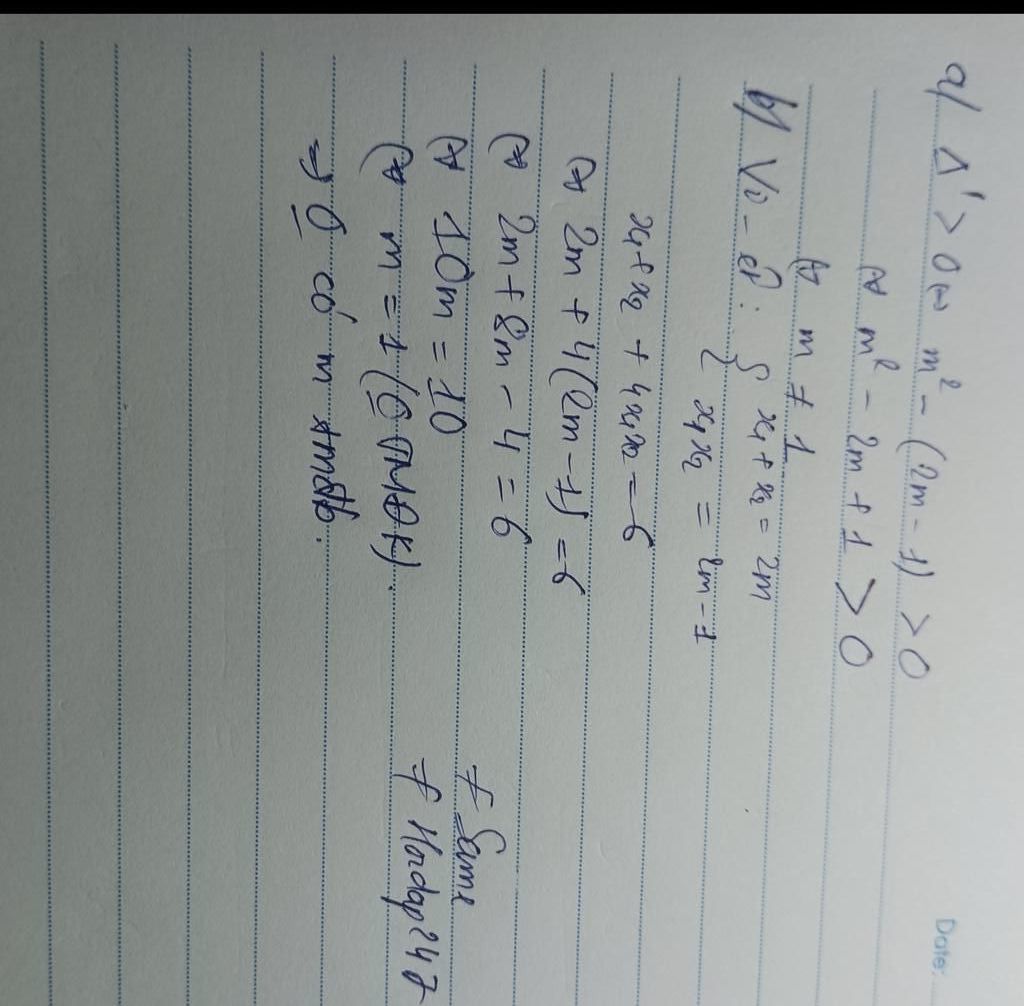 Date:
a/ Δ' > 0 ⇔ m² - (2m - 1) > 0
⇔ m² - 2m + 1 > 0
⇔ m ≠ 1
b/ Vi-ét: { x₁ + x₂ = 2m
{ x₁x₂ = 2m - 1
x₁ + x₂ + 4x₁x₂ = 6
⇔ 2m + 4(2m - 1) = 6
⇔ 2m + 8m - 4 = 6
⇔ 10m = 10
⇔ m = 1 (0 TMĐK).
⇒ 0 có m tmđb.
# Sama
# Hoidap247